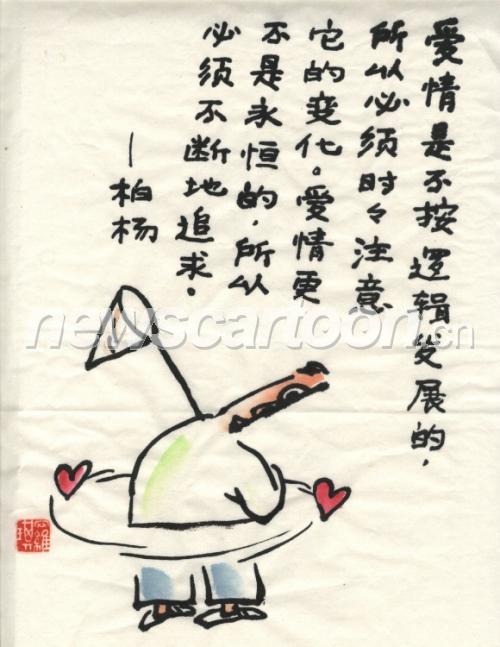 爱情是不按逻辑发展的，
所以必须时々注意
它的变化。爱情更
不是永恒的，所以
必须不断地追求。
—柏杨
newscartoon.cn